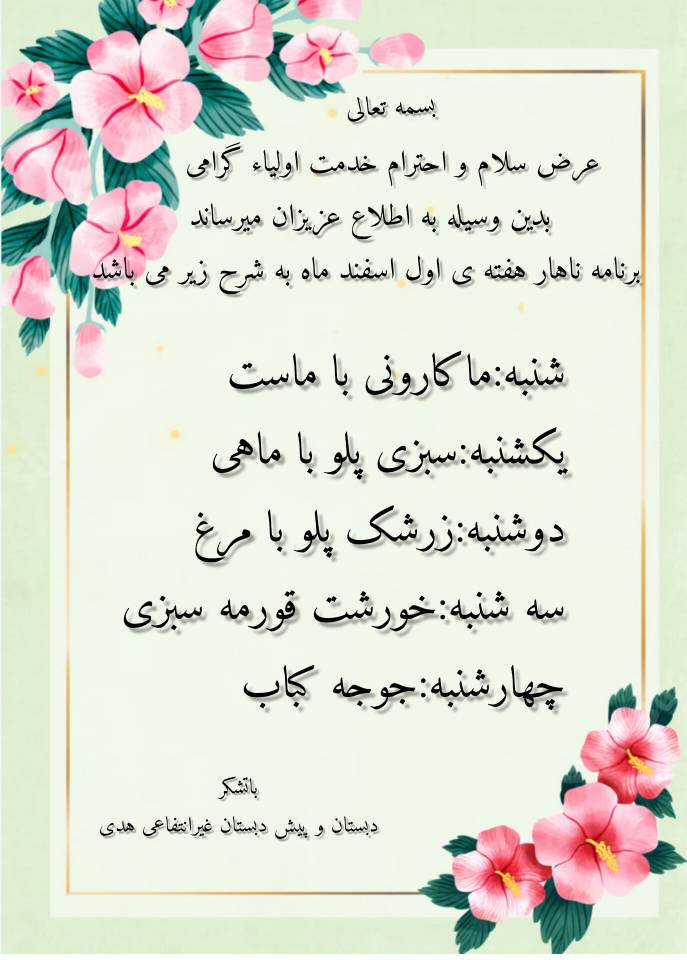 بسمه تعالی
عرض سلام و احترام خدمت اولیاء گرامی
بدین وسیله به اطلاع عزیزان میرساند
برنامه ناهار هفته ی اول اسفند ماه به شرح زیر می باشد
شنبه:ماکارونی با ماست
یکشنبه:سبزی پلو با ماهی
دوشنبه:زرشک پلو با مرغ
سه شنبه:خورشت قورمه سبزی
چهارشنبه:جوجه کباب
باتشکر
دبستان و پیش دبستان غیرانتفاعی هدی